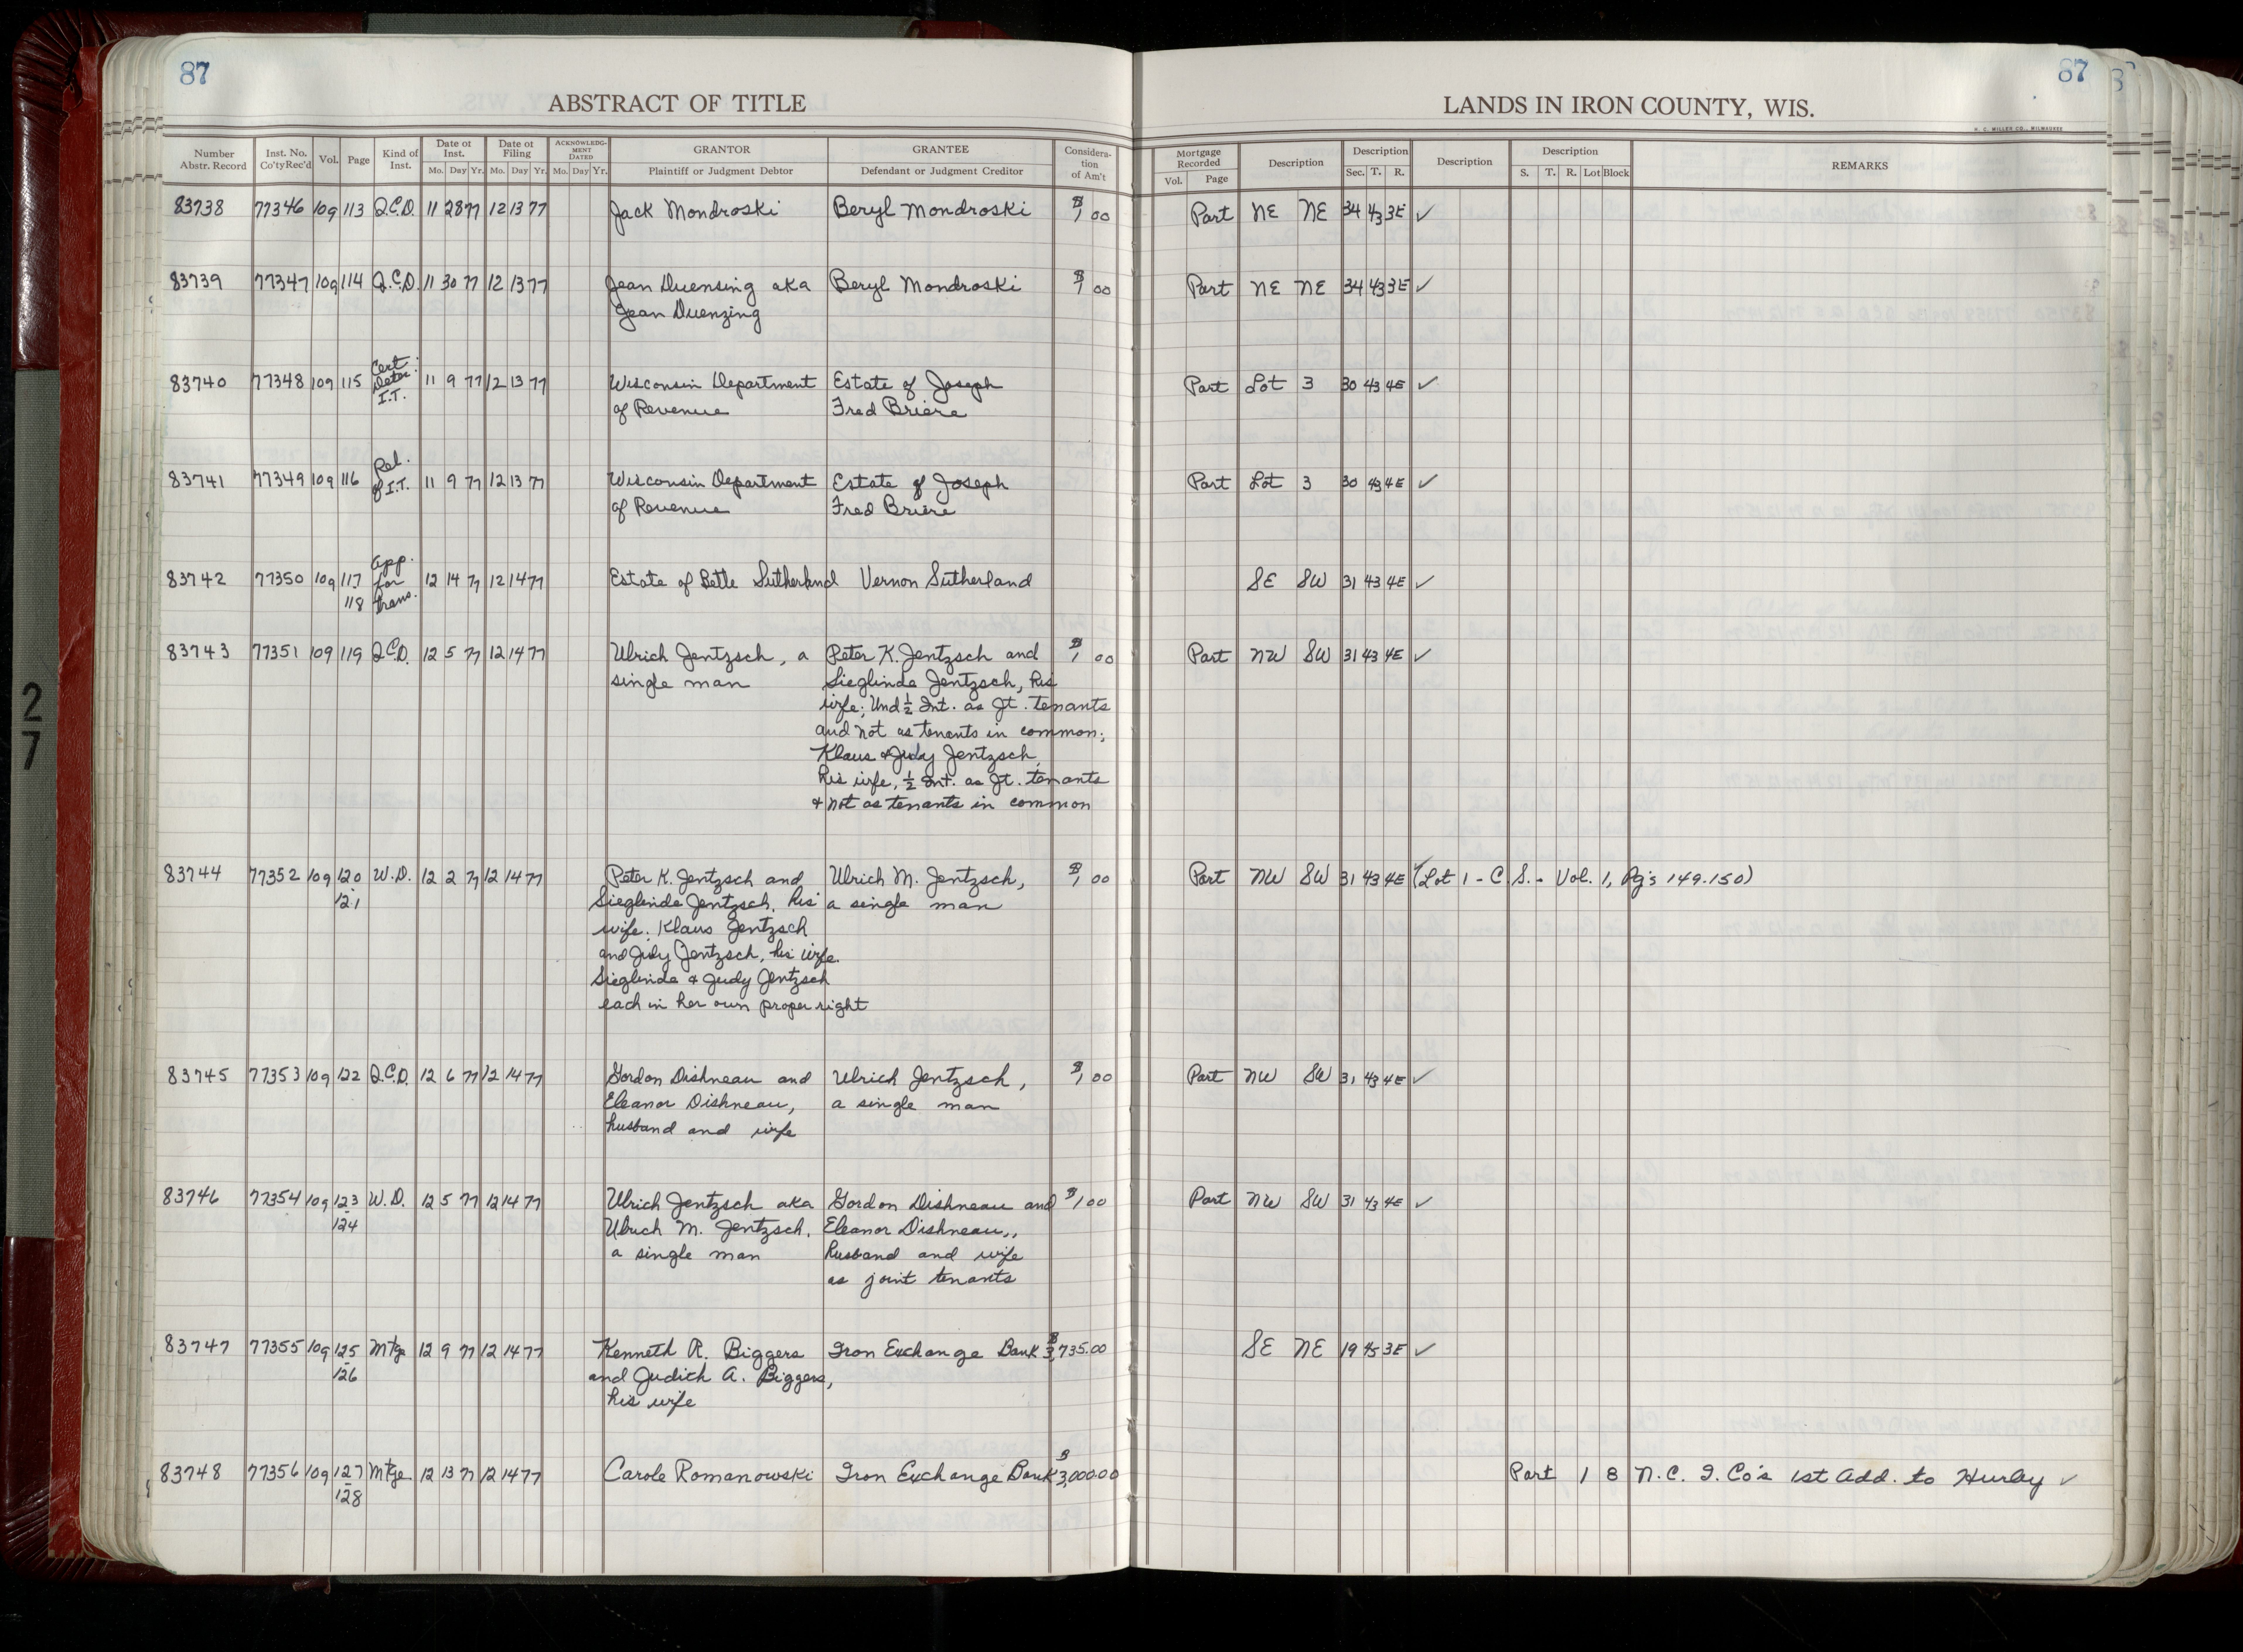 87
87
ABSTRACT OF TITLE
LANDS IN IRON COUNTY, WIS.
H. C. MILLER CO., MILWAUKEE
Number Abstr. Record Inst. No. Co'ty Rec'd Vol. Page Kind of Inst. Date of Inst. Mo. Day Yr. Date of Filing Mo. Day Yr. ACKNOWLEDGMENT DATED Mo. Day Yr. GRANTOR Plaintiff or Judgment Debtor GRANTEE Defendant or Judgment Creditor Consideration of Am't Mortgage Recorded Vol. Page Description Description Sec. T. R. Description Description S. T. R. Lot Block REMARKS
83738 77346 109 113 Q.C.D. 11 28 77 12 13 77 Jack Mondroski Beryl Mondroski $1.00 Part NE NE 34 43 3E ✓
83739 77347 109 114 Q.C.D. 11 30 77 12 13 77 Jean Duensing aka Beryl Mondroski $1.00 Part NE NE 34 43 3E ✓
Jean Duenzing
Cert.
83740 77348 109 115 Deter. 11 9 77 12 13 77 Wisconsin Department Estate of Joseph Part Lot 3 30 43 4E ✓
I.T. of Revenue Fred Briere
Rel.
83741 77349 109 116 of I.T. 11 9 77 12 13 77 Wisconsin Department Estate of Joseph Part Lot 3 30 43 4E ✓
of Revenue Fred Briere
App.
83742 77350 109 117 for 12 14 77 12 14 77 Estate of Bette Sutherland Vernon Sutherland SE SW 31 43 4E ✓
118 trans.
83743 77351 109 119 Q.C.D. 12 5 77 12 14 77 Ulrich Jentzsch, a Peter K. Jentzsch and $1.00 Part NW SW 31 43 4E ✓
single man Sieglinde Jentzsch, his
wife; Und ½ Int. as Jt. tenants
and not as tenants in common;
Klaus & Judy Jentzsch,
his wife, ½ Int. as Jt. tenants
& not as tenants in common
83744 77352 109 120 W.D. 12 2 77 12 14 77 Peter K. Jentzsch and Ulrich M. Jentzsch, $1.00 Part NW SW 31 43 4E ✓ (Lot 1 - C.S. - Vol. 1, Pg's 149-150)
121 Sieglinde Jentzsch, his a single man
wife; Klaus Jentzsch
and Judy Jentzsch, his wife.
Sieglinde & Judy Jentzsch
each in her own proper right
83745 77353 109 122 Q.C.D. 12 6 77 12 14 77 Gordon Dishneau and Ulrich Jentzsch, $1.00 Part NW SW 31 43 4E ✓
Eleanor Dishneau, a single man
husband and wife
83746 77354 109 123 W.D. 12 5 77 12 14 77 Ulrich Jentzsch aka Gordon Dishneau and $1.00 Part NW SW 31 43 4E ✓
124 Ulrich M. Jentzsch, Eleanor Dishneau,
a single man husband and wife
as joint tenants
83747 77355 109 125 Mtge 12 9 77 12 14 77 Kenneth R. Biggers Iron Exchange Bank $3,735.00 SE NE 19 45 3E ✓
126 and Judith A. Biggers,
his wife
83748 77356 109 127 Mtge 12 13 77 12 14 77 Carole Romanowski Iron Exchange Bank $3,000.00 Part 1 8 N.C. I. Co's 1st Add. to Hurley ✓
128
27